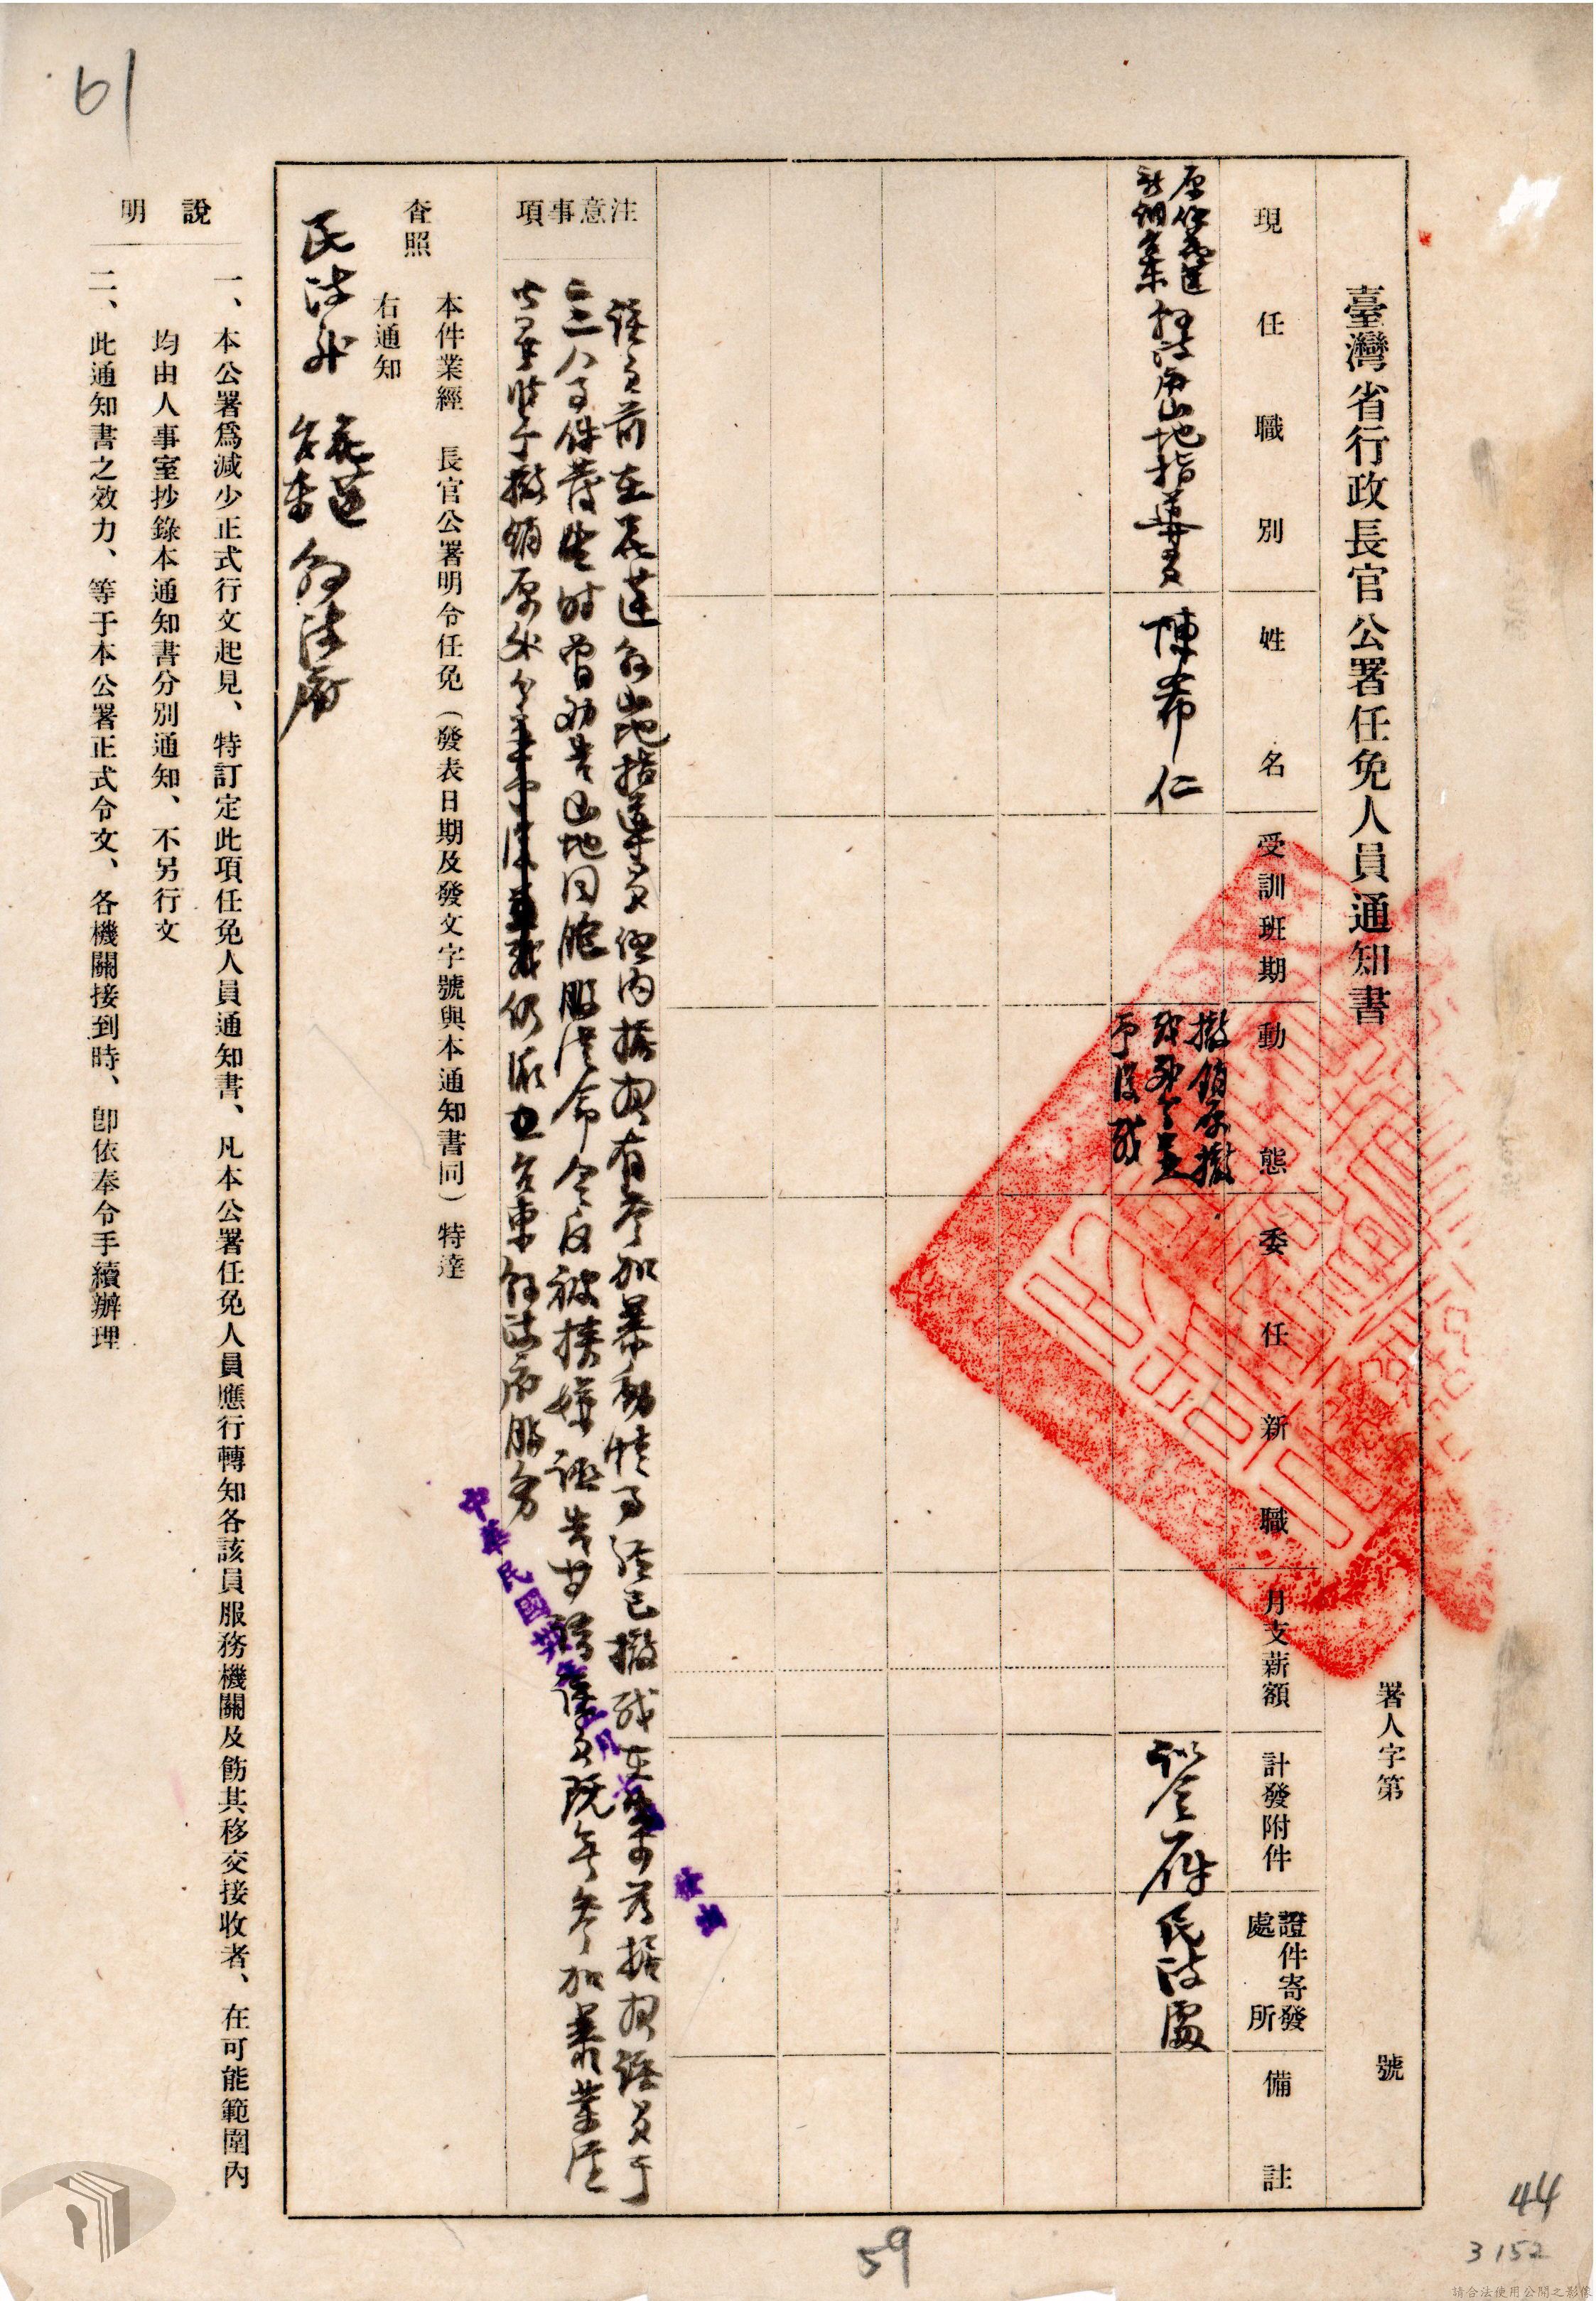 臺灣省行政長官公署任免人員通知書
署人字第 號
現任職別
姓名
受訓班期
動態
委任新職
月支薪額
計發附件
證件寄發
處所
備註
原任花蓮
新調台東
縣政府山地指導員
陳希仁
撤銷原撤
職処分並
予復職
訓令一件
民政處
注意事項
該員前在花蓮縣山地指導員任內據報有參加暴動情事經已撤職在案茲據報該員于
二二八事件發生時曾勸告山地同胞服從命令反被挾嫌誣告甘 該員既無參加暴業經
撤銷原処分 仍派在台東縣政府服务
本件業經 長官公署明令任免(發表日期及發文字號與本通知書同)特達
查照
右通知
民政処 花蓮
台東 縣政府
中華民國
說明
一、本公署爲減少正式行文起見、特訂定此項任免人員通知書、凡本公署任免人員應行轉知各該員服務機關及飭其移交接收者、在可能範圍內
均由人事室抄錄本通知書分別通知、不另行文
二、此通知書之效力、等于本公署正式令文、各機關接到時、卽依奉令手續辦理
61
59
44
3152
請合法使用公開之影像